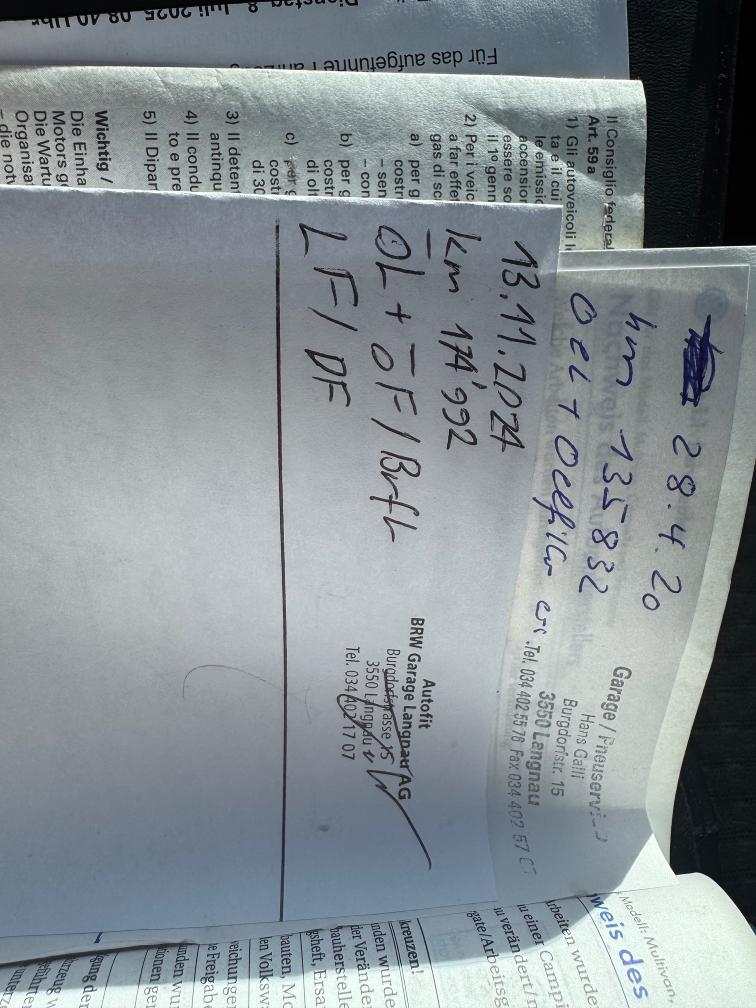 Dienstag, 8. Juli 2025, 08.40 Uhr
Für das aufgeführte
Il Consiglio federal
Art. 59a
1) Gli autoveicoli l
ta e il cui
le emissio
accension
essere so
il 1° genn
2) Per i veic
a far effet
gas di sc
a) per g
costr
- sen
- con
b) per g
costr
di ol
c) per g
cost
di 30
3) Il deten
antinqu
4) Il condu
to e pre
5) Il Dipar
Wichtig /
Die Einha
Motors ge
Die Wartu
Organisa
- die not
28.4.20
km 135832
Oel + Oelfilter
Garage / Pneuservice
Hans Galli
Burgdorfstr. 15
3550 Langnau
Tel. 034 402 55 78 Fax 034 402 57
13.11.2024
km 174'992
ÖL + ÖF / Brfl
LF / DF
Autofit
BRW Garage Langnau AG
Burgdorfstrasse 15
3550 Langnau
Tel. 034 402 17 07
Modell: Multivan
weis des
rbeiten wurd
u einer Camp
u verändert/
gate/Arbeitsg
kreuzen!
nden wurde
der Verände
hauherstelle
gsheft. Ersa
hauten. Mo
en Volksw
veichunge
e Freigab
nden wu
tionen ge
gung der